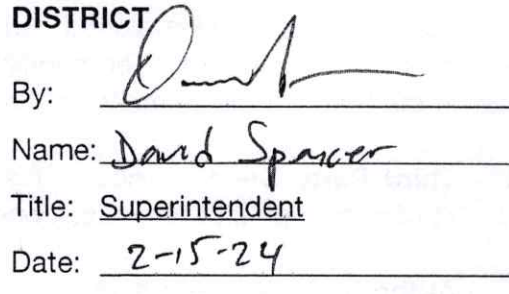 DISTRICT
By:
Name: David Spencer
Title: Superintendent
Date: 2-15-24